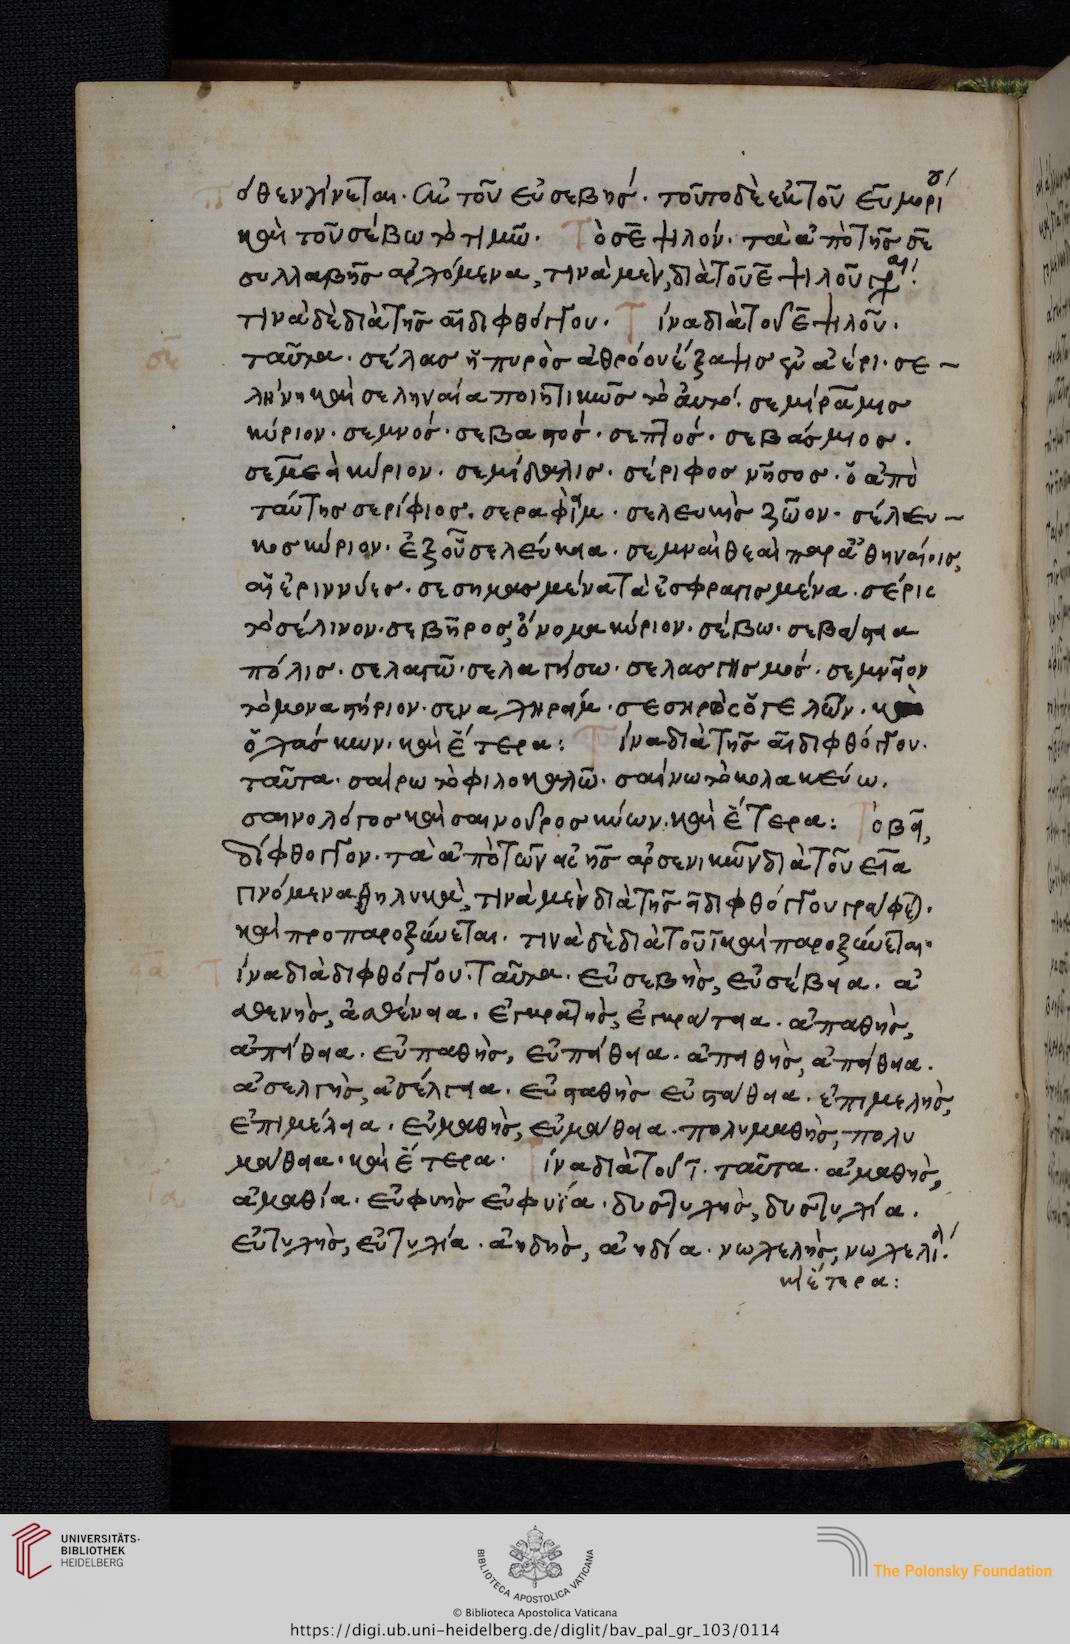 πόθεν γίνεται. ἐκ τοῦ εὐσεβησ. τοῦτο δὲ ἐκ τοῦ εὖ μορί
καὶ τοῦ σέβω τὸ τιμῶ. Τὸ σε ψιλόν. τὰ ἀπὸ τῆς σε
συλλαβῆς ἀρχόμενα, τινὰ μὲν, διὰ τοῦ ε ψιλοῦ γρ
τινὰ δὲ διὰ τῆς αι διφθόγγου. Τίνα διὰ τοῦ ε ψιλοῦ.
σε
ταῦτα. σέλας ἡ πυρὸς ἀθρόον ἔξαψις ἐν ἀέρι. σε
λήνη καὶ σεληναία ποιητικῶς τὸ αὐτό. σεμίραμις
κύριον. σεμνός. σεβαστός. σεπτός. σεβάσμιος.
σεμεῒ κύριον. σεμίδαλις. σέριφος νῆσος. ὁ ἀπὸ
ταύτης σερίφιος. σεραφὶμ. σελευκὶς ζῶον. σέλευ
κος κύριον. ἐξ οὗ σελεύκεια. σεμναὶ θεαὶ παρ' ἀθηναίοις,
αἱ ἐριννύες. σεσημασμένα τὰ ἐσφραγισμένα. σέρις
τὸ σέλινον. σεβῆρος, ὄνομα κύριον. σέβω. σεβάστεια
πόλις. σελαγῶ. σελαγήσω. σελαγησμός. σεμνεῖον
τὸ μοναστήριον. σεναχηρείμ. σεσηρὸς ὁ γελῶν. καὶ
ὁ χάσκων. καὶ ἕτερα: Τίνα διὰ τῆς αι διφθόγγου.
ταῦτα. σαίρω τὸ φιλοκαλῶ. σαίνω τὸ κολακεύω.
σαινολόγος καὶ σαίνουρος κύων. καὶ ἕτερα: Τὸ βει,
δίφθογγον. τὰ ἀπὸ τῶν εἰς ης ἀρσενικῶν διὰ τοῦ εια
γινόμενα θηλυκὰ, τινὰ μὲν διὰ τῆς ει διφθόγγου γράφεται.
καὶ προπαροξύνεται. τινὰ δὲ διὰ τοῦ ι καὶ παροξύνεται.
Τίνα διὰ διφθόγγου. ταῦτα. εὐσεβὴς, εὐσέβεια. ἀ
σθενὴς, ἀσθένεια. ἐγκρατὴς, ἐγκράτεια. ἀπαθὴς,
ἀπάθεια. εὐπαθὴς, εὐπάθεια. ἀπειθὴς, ἀπείθεια.
ἀσελγὴς, ἀσέλγεια. εὐσταθὴς εὐστάθεια. ἐπιμελὴς,
ἐπιμέλεια. εὐμαθὴς, εὐμάθεια. πολυμαθὴς, πολυ
μάθεια. καὶ ἕτερα. Τίνα διὰ τοῦ ι. ταῦτα. ἀμαθὴς,
ια
ἀμαθία. εὐφυὴς εὐφυΐα. δυστυχὴς, δυστυχία.
εὐτυχὴς, εὐτυχία. ἀηδὴς, ἀηδία. νωχελὴς, νωχελία.
καὶ ἕτερα:
UNIVERSITÄTS-
BIBLIOTHEK
HEIDELBERG
BIBLIOTECA APOSTOLICA VATICANA
The Polonsky Foundation
© Biblioteca Apostolica Vaticana
https://digi.ub.uni-heidelberg.de/diglit/bav_pal_gr_103/0114